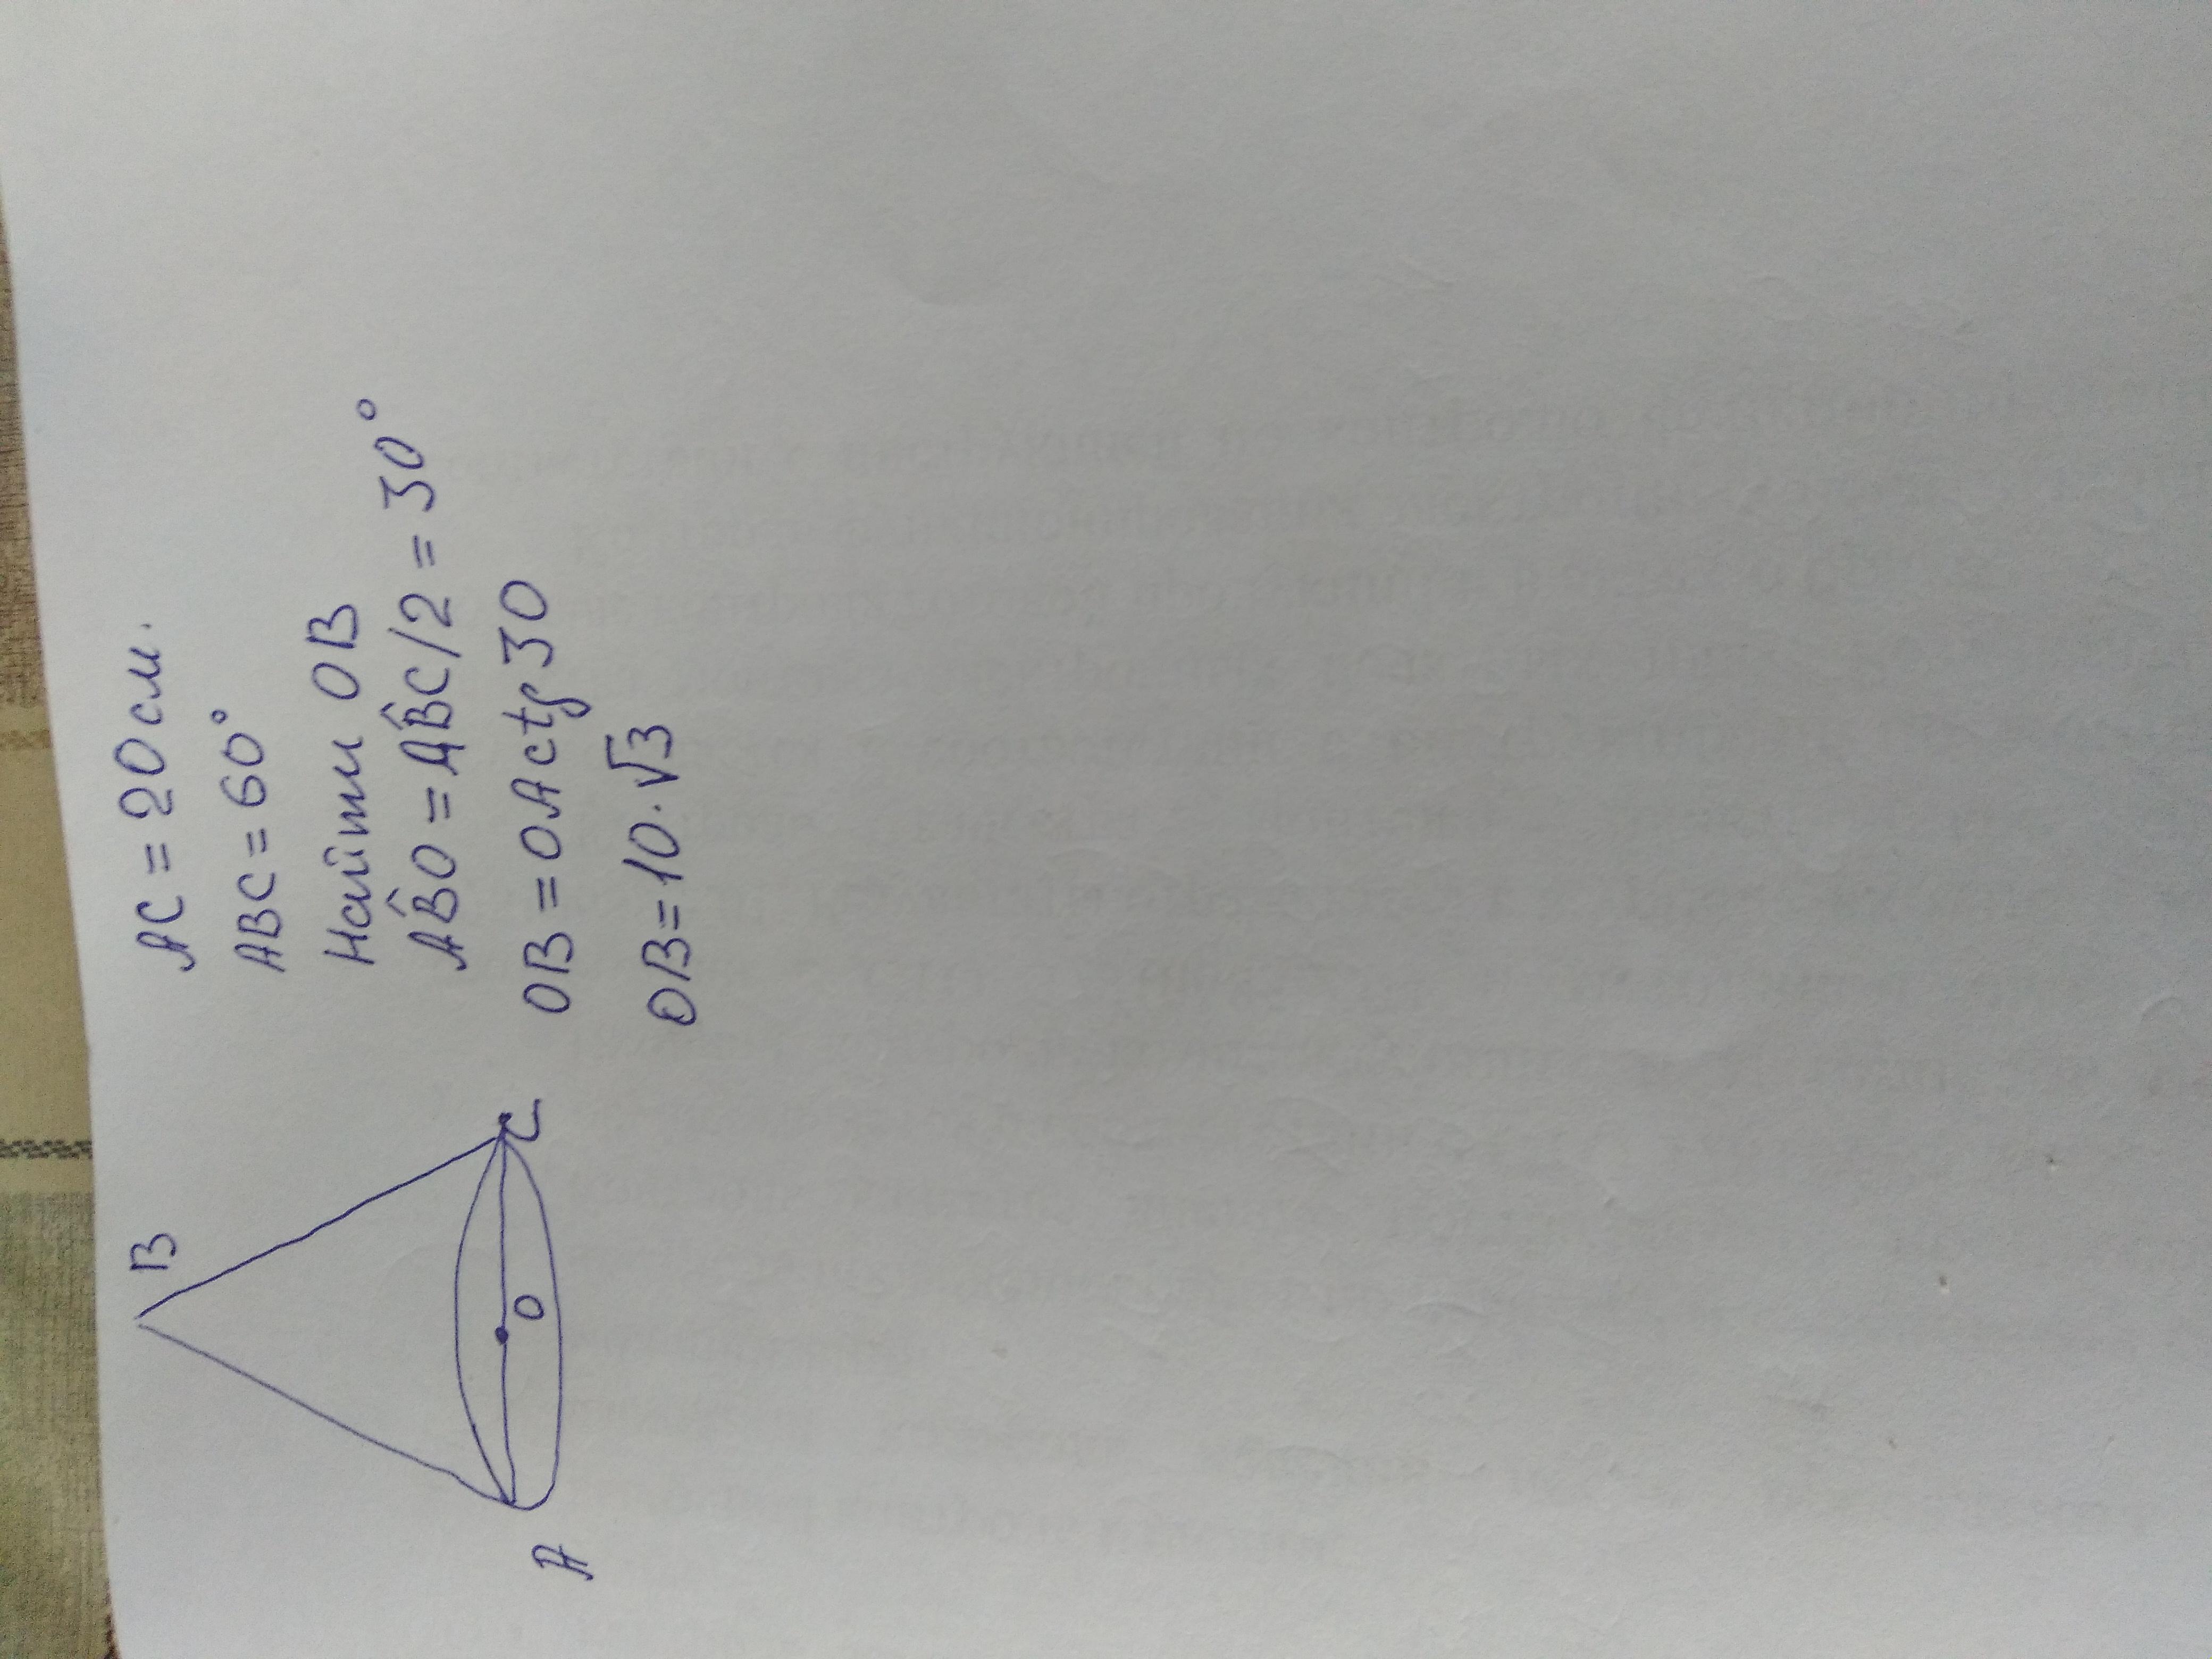 B
A
O
C
AC = 20 см.
ABC = 60°
Найти OB
AB̂O = AB̂C/2 = 30°
OB = OA ctg 30
OB = 10 · √3